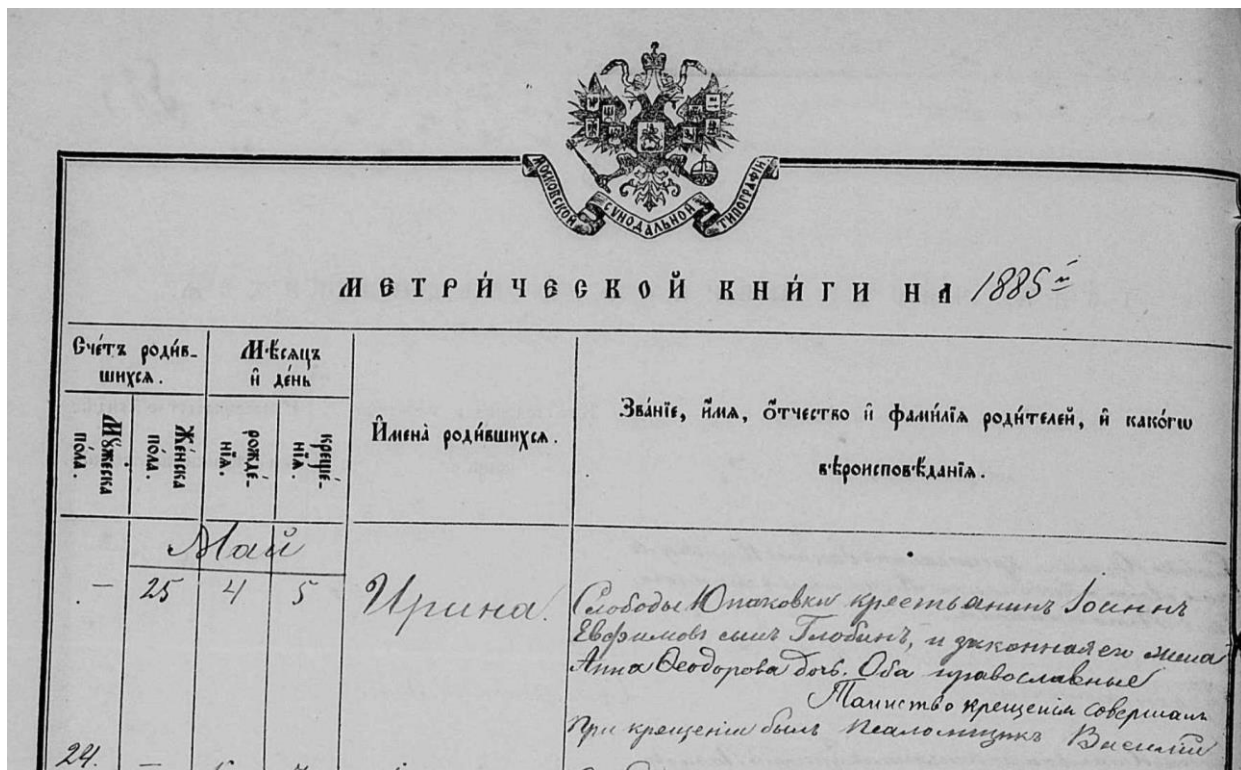 МОСКОВСКОЙ СѴНОДАЛЬНОЙ ТИПОГРАФІИ.
МЕТРИ́ЧЕСКОЙ КНИ́ГИ НА 1885 г.
Сче́тъ роди́в-
шихсѧ.
Мꙋ́жеска
по́ла.
Же́нска
по́ла.
М́ѣсѧцъ
и҆ де́нь
рожде́-
нїѧ.
креще́-
нїѧ.
И҆мена̀ роди́вшихсѧ.
Зва́нїе, и҆́мѧ, ѻ҆́тчество и҆ фами́лїѧ роди́телей, и҆ како́гѡ
вѣроисповѣ́данїѧ.
Май
— 25 4 5 Ирина. Слободы Юнаковки крестьянинъ Іоаннъ
Евфимовъ сынъ Глобинъ, и законная его жена
Анна Ѳеодорова дочь. Оба православные
Таинство крещенія совершалъ
При крещеніи былъ псаломщикъ Василій
24. —